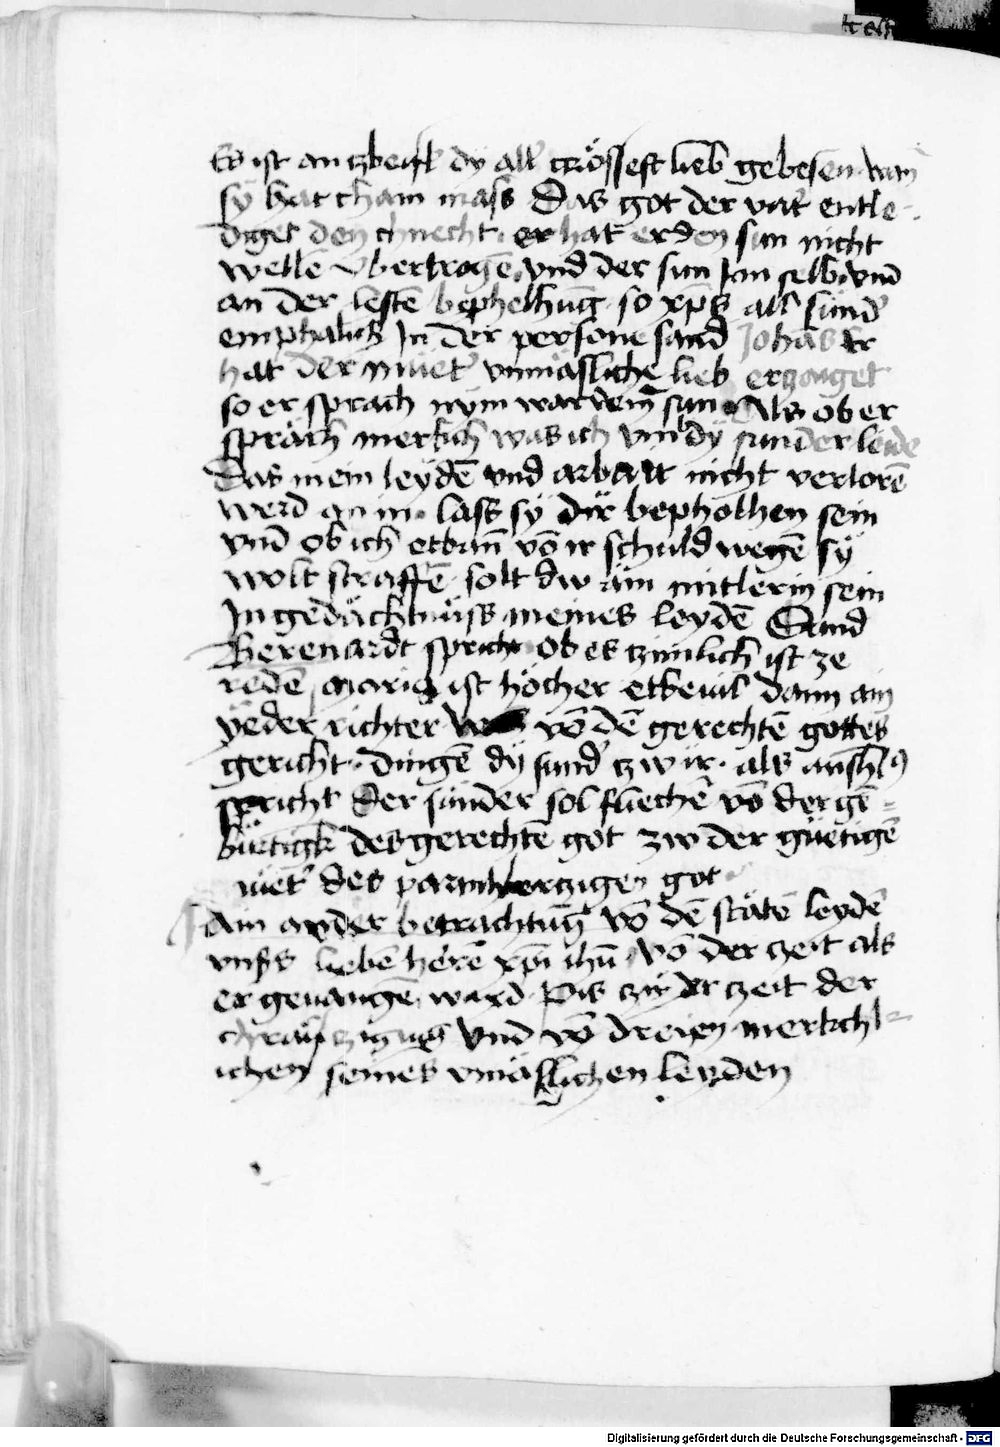 Es ist an tzbeifl dy all' grössest lieb gebesen wan
sy hat cham mass Das got der vat' entle
diget den chnecht er hat er den sun nicht
welle vbertragē vnd der sun Im selb vnd
an der lestē bephelhūg so xp̄s all sünd'
emphalich In der persone sand Johās Er
hat der müet' vnmäsliche lieb erzaiget
so er sprach nym war dein sun Als ob er
spräch merkch was ich vmb dy sunder leide
Das mein leydē vnd arbait nicht verlorē
werd an in lass sy dir bepholhen sein
vnd ob ich etbān vō ir schuld wegē sy
wolt straffē solt dw ain mitlerin sein
In gedächtnüss meines leydē Sand
Berenardt spricht ob es zimlich ist ze
redē maria ist höcher etbeuil dann ain
yeder richter vō dē gerechtē gottes
gericht dingē dy sund' tzw ir als anshl9
spricht der sünder sol fliechē vō der ge=
büetigk des gerechtē got zw der güetigē
müet' des parmherzigen got
Ain ander betrachtūg vō dē stätē leydē
vnss liebē herē xp̄i ihū vō der zeit als
er geuangē ward Pis tzu der tzeit der
chräutzigūg vnd vō dreien merkchl=
ichen seines vmäslichen leyden
Digitalisierung gefördert durch die Deutsche Forschungsgemeinschaft - DFG